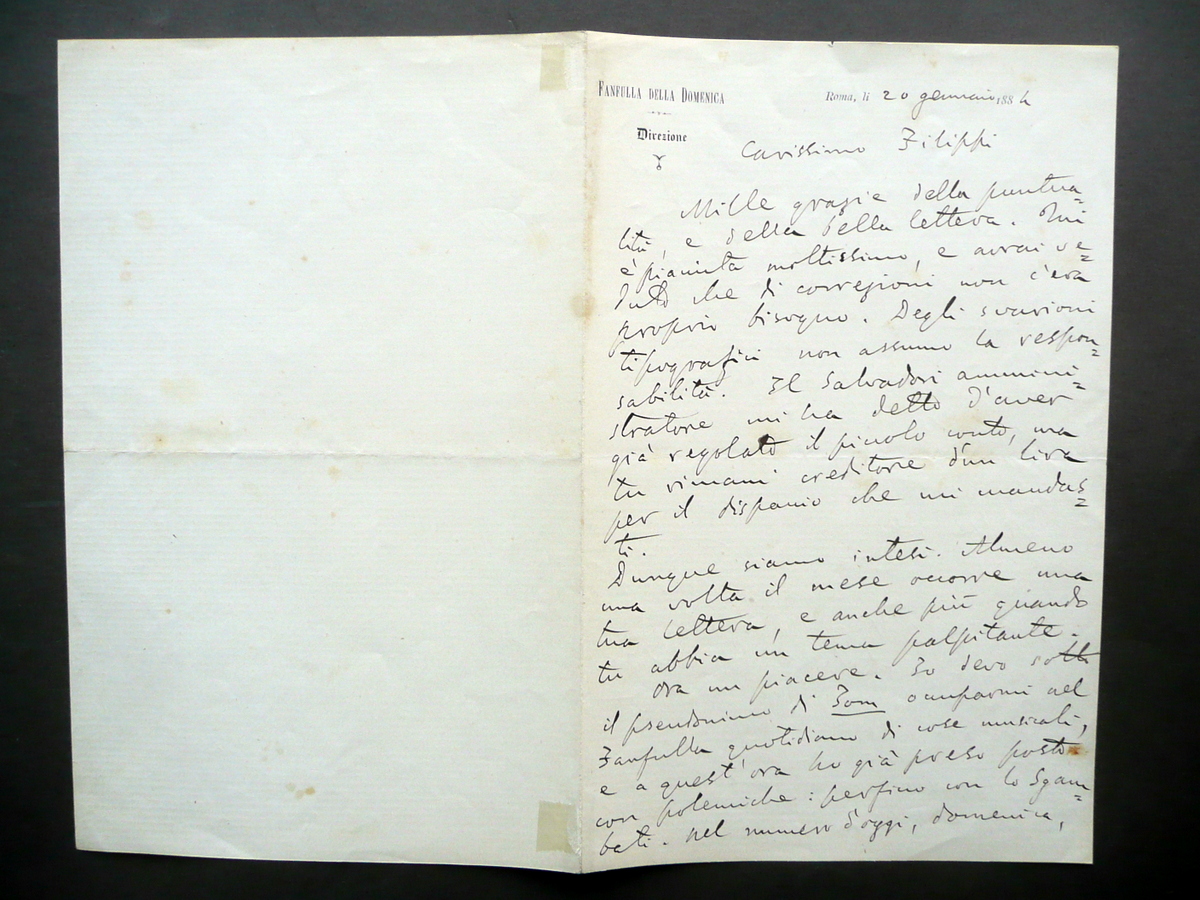 FANFULLA DELLA DOMENICA
Direzione
Roma, li 20 gennaio 1884
Carissimo Filippi
Mille grazie della puntua=
lità, e della bella lettera. Mi
è piaciuta moltissimo, e avrai ve=
duto che di correzioni non c'era
proprio bisogno. Degli svarioni
tipografici non assumo la respon=
sabilità. Il Salvadori ammini=
stratore mi ha detto d'aver
già regolato il piccolo conto, ma
tu rimani creditore d'un lira
per il dispaccio che mi mandas=
ti.
Dunque siamo intesi. Almeno
una volta il mese occorre una
tua lettera, e anche più quando
tu abbia un tema palpitante.
Ora un piacere. Io devo sotto
il pseudonimo di Tom occuparmi nel
Fanfulla quotidiano di cose musicali,
e a quest'ora ho già preso posto
con polemiche: perfino con lo Sgam=
bati. Nel numero d'oggi, domenica,